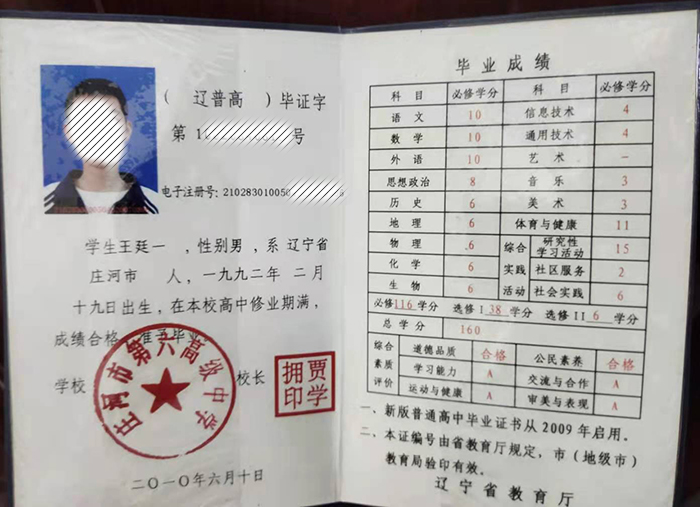 （ 辽普高 ）毕证字
第1 号
电子注册号：21028301005
学生王廷一 ，性别男，系 辽宁省
庄河市 人，一九九二年 二月
十九日出生，在本校高中修业期满，
成绩合格，准予毕业
学校 校长
庄河市第六高级中学
贾学拥印
二〇一〇年六月十日
毕业成绩
科目 必修学分 科目 必修学分
语文 10 信息技术 4
数学 10 通用技术 4
外语 10 艺术 —
思想政治 8 音乐 3
历史 6 美术 3
地理 6 体育与健康 11
物理 6 综合实践活动 研究性学习活动 15
化学 6 社区服务 2
生物 6 社会实践 6
必修116学分 选修I 38 学分 选修II 6 学分
总学分 160
综合素质评价 道德品质 合格 公民素养 合格
学习能力 A 交流与合作 A
运动与健康 A 审美与表现 A
一、新版普通高中毕业证书从2009年启用。
二、本证编号由省教育厅规定，市（地级市）
教育局验印有效。
辽宁省教育厅